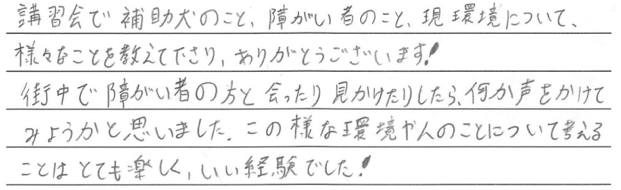 講習会で補助犬のこと、障がい者のこと、現環境について、
様々なことを教えて下さり、ありがとうございます!
街中で障がい者の方と会ったり見かけたりしたら、何か声をかけて
みようかと思いました。この様な環境や人のことについて考える
ことはとても楽しく、いい経験でした!